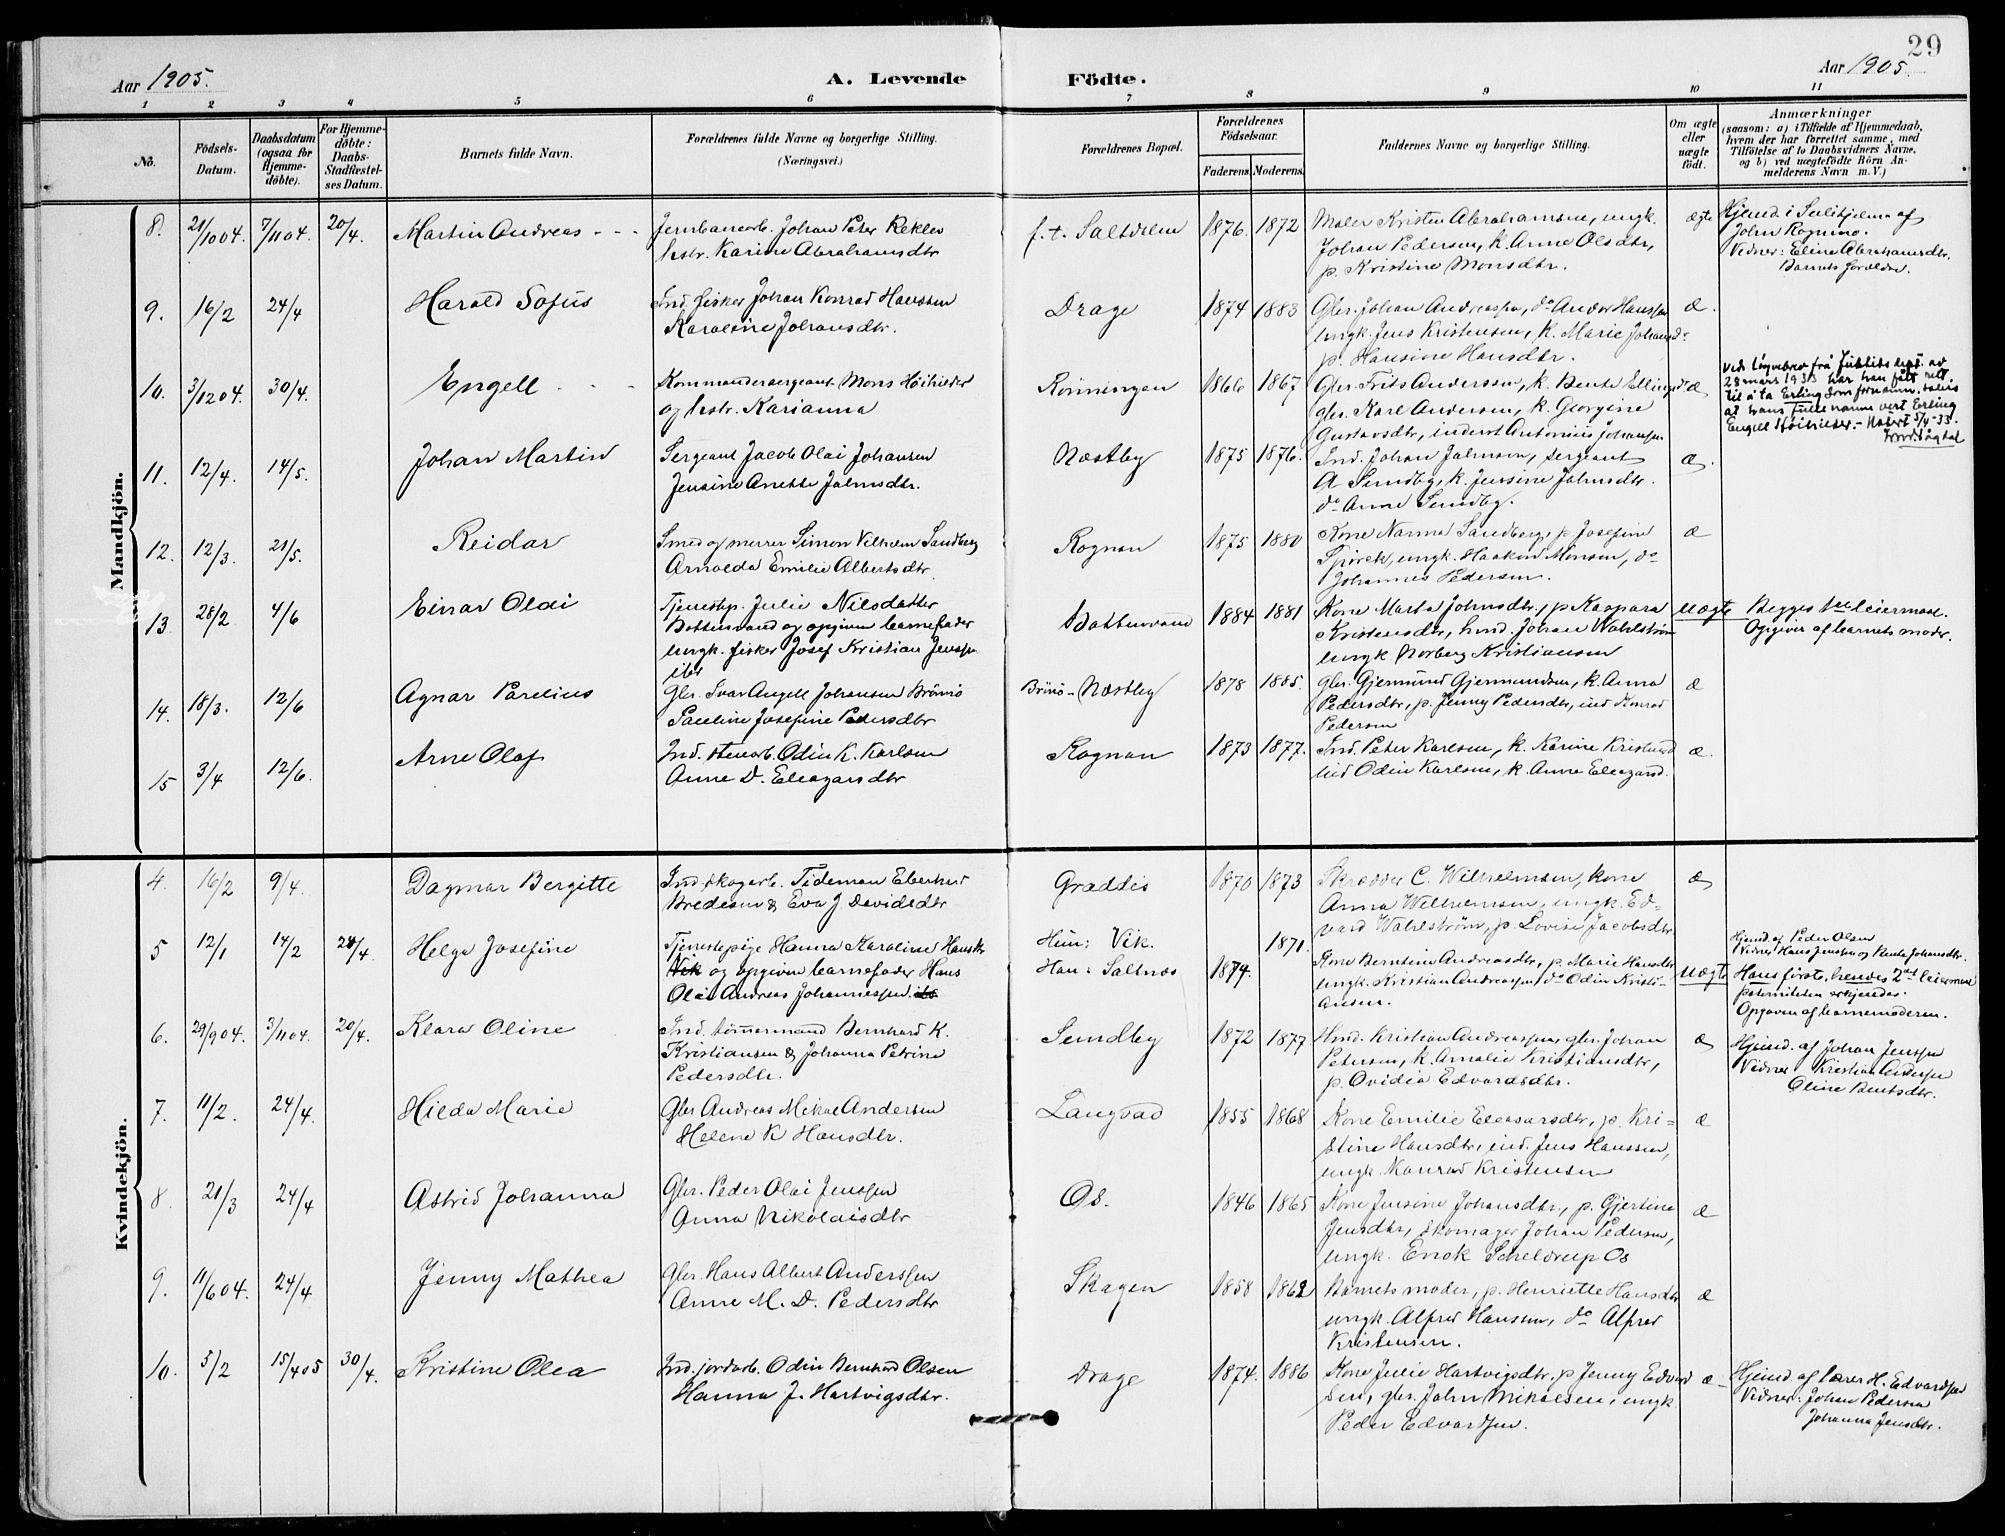 29
Aar 1905. A. Levende Födte. Aar 1905.
1 2 3 4 5 6 7 8 9 10 11
No. Födsels-Datum. Daabsdatum (ogsaa for Hjemme-döbte). For Hjemme-döbte: Daabs-Stadfæstel-ses Datum. Barnets fulde Navn. Forældrenes fulde Navne og borgerlige Stilling. (Næringsvei.) Forældrenes Bopæl. Forældrenes Födselsaar. Faderens. Moderens. Faddernes Navne og borgerlige Stilling. Om ægte eller uægte födt. Anmærkninger (saasom: a) i Tilfælde af Hjemmedaab, hvem der har forrettet samme, med Tilföielse af to Daabsvidners Navne, og b) ved uægtefödte Börn Anmelderens Navn m. V.)
Mandkjön.
8. 21/10 04. 7/11 04. 20/4. Martin Andreas - - - Jernbanearb. Johan Peter Rekler f. t. Saltdalen 1876. 1872 Maler Kristen Abrahamsen, ungk. ægte Hjemd. i Sulitjelma af
hstr. Karine Abrahamsdtr Johan Pedersen, k. Anne Olsdtr, John Rognmo.
p. Kristine Monsdtr. Vidner: Eline Abrahamsdtr.
Barnets forældre.
9. 16/2 24/4 Harald Sofus Ind. fisker Johan Konrad Hanssen Drage 1874 1883 Gbr. Johan Andreassen, do Andor Hanssen æ.
Karoline Johansdtr. ungk. Jens Kristensen, k. Marie Johansd.
p. Hansine Hansdtr.
10. 3/12 04. 30/4. Engell - - Kommandersergeant Mons Höihilder Rönningen 1866 1867 Gbr. Frits Anderssen, k. Bente Ellingsd æ
og hstr. Karianna gbr. Karl Andersen, k. Georgine
Gustavsdtr, inderst Antonius Johansen
28 mars 1933 har han fått rett
til å ta Erling som fornamn, soleis
at hans fulle namn vert Erling
Engell Höihilder. - Notert 5/4-33.
11. 12/4. 14/5. Johan Martin Sergeant Jacob Olai Johansen Næstby 1875 1876. Ind. Johan Jahnsen, sergeant æ.
Jensine Anette Jahnsdtr. A Sundby, k. Jensine Jahnsdtr.
do Anne Sundby.
12. 12/3. 21/5. Reidar Smed og murer Simon Vilhelm Sandberg Rognan 1875 1880 Kone Nanna Sandberg, p Josefine æ
Arnolda Emilie Albertsdtr. ungk. Haakon Monsen, do
Johannes Pedersen.
13. 28/2 4/6 Einar Olai Tjenestep. Julie Nilsdatter Botnvand 1884 1881 Kone Marta Johnsdtr, p Kaspara uægte Begges 1ste leiermaal.
Bottenvand og opgiven barnefader Kristensdtr, husd. Johan Wahlström Opgiver af barnets moder.
ungk. fisker Josef Kristian Jenssen ungk Norberg Kristiansen
ibs
14. 18/3. 12/6 Agnar Parelius Gbr. Ivar Angell Johansen Brönö Brönö-Næstby 1878 1885. gbr. Gjermund Gjermundsen, k. Anna æ
Pauline Josefine Pedersdtr Pedersdtr, p. Jenny Pedersdtr, ind Konrad
Pedersen
15 3/4 12/6. Arne Olaf Ind. stenarb. Odin K. Karlsen Rognan 1873 1877. Ind. Peter Karlsen, k. Karine Kristensd æ.
Anne D. Eleazarsdtr ind Odin Karlsen, k. Anne Eleazarsd.
Kvindekjön.
4. 16/2 9/4. Dagmar Bergitte Ind. skogarb. Tideman Eberhard Graddis 1870 1873 Skrædder C. Wilhelmsen, kone æ
Bredesen & Eva J. Davidsdtr Anna Wilhelmsen, ungk. Ed-
vard Wahlström, p. Lovise Jacobsdtr
5 12/1 14/2 24/4. Helga Josefine Tjenestepige Hanna Karoline Hansdtr Hun: Vik. 1871. Kone Berntine Andreasdtr, p. Marie Hansdtr Hjemd. af Peder Olsen
Vik og opgiven barnefader Hans Han: Saltnæs 1874. ungk. Kristian Andreassen, do Odin Kristi- uægte Vidner Hans Jenssen og Bente Johansdtr.
Olai Andreas Johannessen ibs ansen. Hans förste, hendes 2det leiermaal
paterniteten erkjendes.
Opgaven af barnemoderen.
6. 29/9 04. 3/11 04. 20/4. Klara Oline Ind. tömmermand Bernhard K. Sundby 1872 1877 Husd. Kristian Andreassen, gbr. Johan æ Hjemd. af Johan Jenssen
Kristiansen & Johanna Petrine Petersen, k. Amalie Kristiansdtr, Vidner Kristian Anderssen
Pedersdtr. p. Ovidia Edvardsdtr. Oline Bentsdtr.
7. 11/2. 24/4. Hilda Marie Gbr Andreas Mikal Andersen Langvad 1855 1868 Kone Emilie Eleasarsdtr, p. Kri- æ
Helene K Hansdtr. stine Hansdtr, ind. Jens Hanssen,
ungk. Konrad Kristensen
8. 21/3 24/4 Astrid Johanna Gbr. Peder Olai Jenssen Os. 1846 1865 Kone Jensine Johansdtr, p. Gjertine æ
Anna Nikolaisdtr Jensdtr, skomager Johan Pedersen,
ungk. Enok Scheldrup Os
9. 11/6 04. 24/4 Jenny Mathea Gbr. Hans Albert Anderssen Skagen 1858 1862 Barnets moder, p. Henriette Hansdtr æ
Anne M. D. Pedersdtr ungk. Alfred Hanssen, do Alfred
Kristensen.
10. 5/2 15/4 05 30/4. Kristine Olea Ind. jordarb. Odin Bernhard Olsen Drage 1874. 1886 Kone Julie Hartvigsdtr, p Jenny Edvard æ Hjemd. af lærer H. Edvardsen
Hanna J. Hartvigsdtr. sen, gbr. John Mikalsen, ungk Vidner: Johan Pedersen
Peder Edvardsen. Johanna Jensdtr.